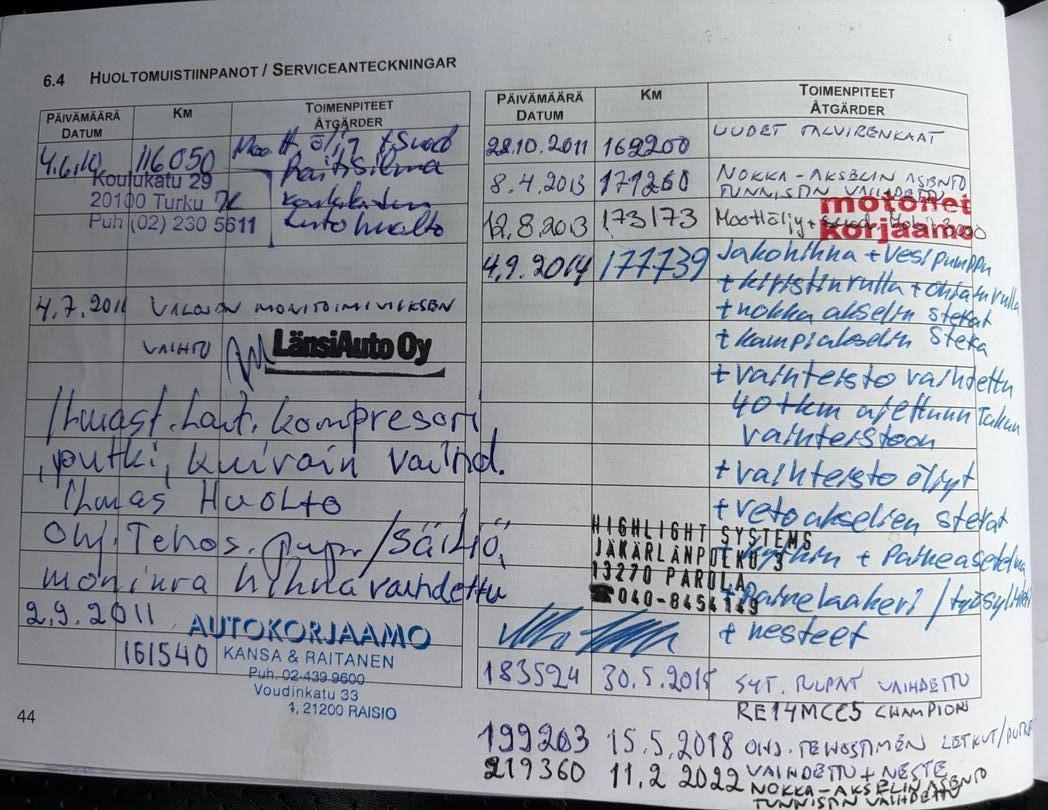 6.4 HUOLTOMUISTIINPANOT / SERVICEANTECKNINGAR
PÄIVÄMÄÄRÄ DATUM KM TOIMENPITEET ÅTGÄRDER
4.6.10 116 050 Moott. öljy + suod
raitisilma
Koulukatu 29
20100 Turku
Puh (02) 230 5611
koulukadun
autohuolto
4.7.2011 VALOJEN MONITOIMIVIKSEN
VAIHTO LänsiAuto Oy
Ilmast. Lait. kompresori
, putki, kuivain vaihd.
Ilmas Huolto
Ohj. Tehos. pupr/säiliö,
moniura hihna vaihdettu
2.9.2011
161540
AUTOKORJAAMO
KANSA & RAITANEN
Puh. 02-439 9600
Voudinkatu 33
4, 21200 RAISIO
44
PÄIVÄMÄÄRÄ DATUM KM TOIMENPITEET ÅTGÄRDER
28.10.2011 169200 UUDET TALVIRENKAAT
8.4.2013 171260 NOKKA-AKSELIN ASENTO
TUNNISTIN VAIHDETTU
motonet
korjaamo
12.8.2013 173173 Moottöljy +
4.9.2014 177739 Jakohihna + vesipumppu
+ kiristinrulla + ohjainrulla
+ nokka akselin stefat
+ kampiakselin stefa
+ vaihteisto vaihdettu
40 tkm ajettuun
vaihteistoon
+ vaihteisto öljyt
+ vetoakselien stefat
+ kytkin + Paineasetelma
+ Painelaakeri / työsylinteri
+ nesteet
HIGHLIGHT SYSTEMS
JÄKÄRLÄNPOLKU 3
13270 PAROLA
☎040-8454149
183524 30.5.2015 SYT. TULPAT VAIHDETTU
RE14MCC5 CHAMPION
199203 15.5.2018 OHJ. TEHOSTIMEN LETKUT/PUTKET
VAIHDETTU + NESTE
219360 11.2 2022 NOKKA-AKSELIN ASENTO
TUNNISTIN VAIHDETTU